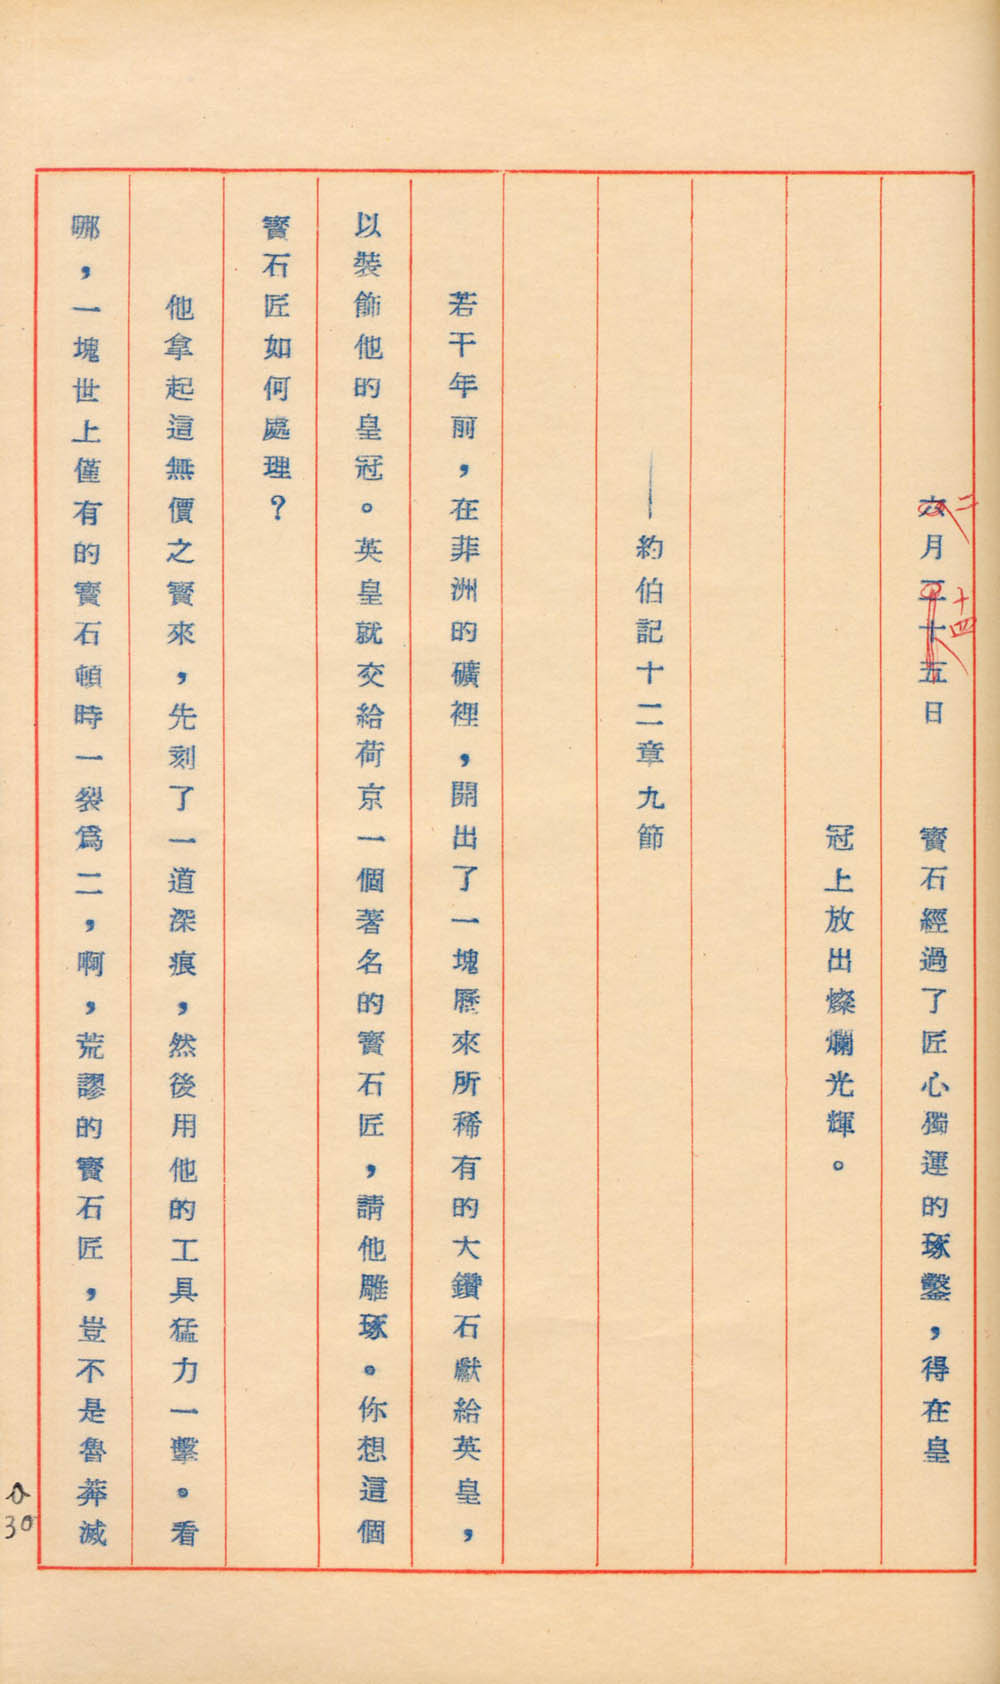 六月二十五日　寶石經過了匠心獨運的琢鑿，得在皇
二
十四
冠上放出燦爛光輝。
——約伯記十二章九節
若干年前，在菲洲的礦裡，開出了一塊歷來所稀有的大鑽石獻給英皇，
以裝飾他的皇冠。英皇就交給荷京一個著名的寶石匠，請他雕琢。你想這個
寶石匠如何處理？
他拿起這無價之寶來，先刻了一道深痕，然後用他的工具猛力一擊。看
哪，一塊世上僅有的寶石頓時一裂爲二，啊，荒謬的寶石匠，豈不是魯莽滅
30